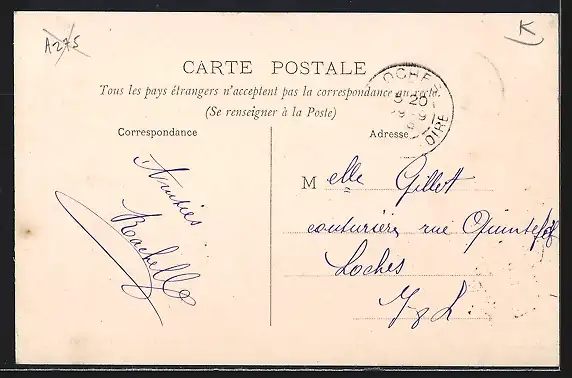 A275
K
CARTE POSTALE
Tous les pays étrangers n'acceptent pas la correspondance au recto.
(Se renseigner à la Poste)
Correspondance
Adresse
LOCHES
5 25
OIRE
Amitiés
Rachelle
Melle Gillet
couturière, rue Quintefol
Loches
I & L.